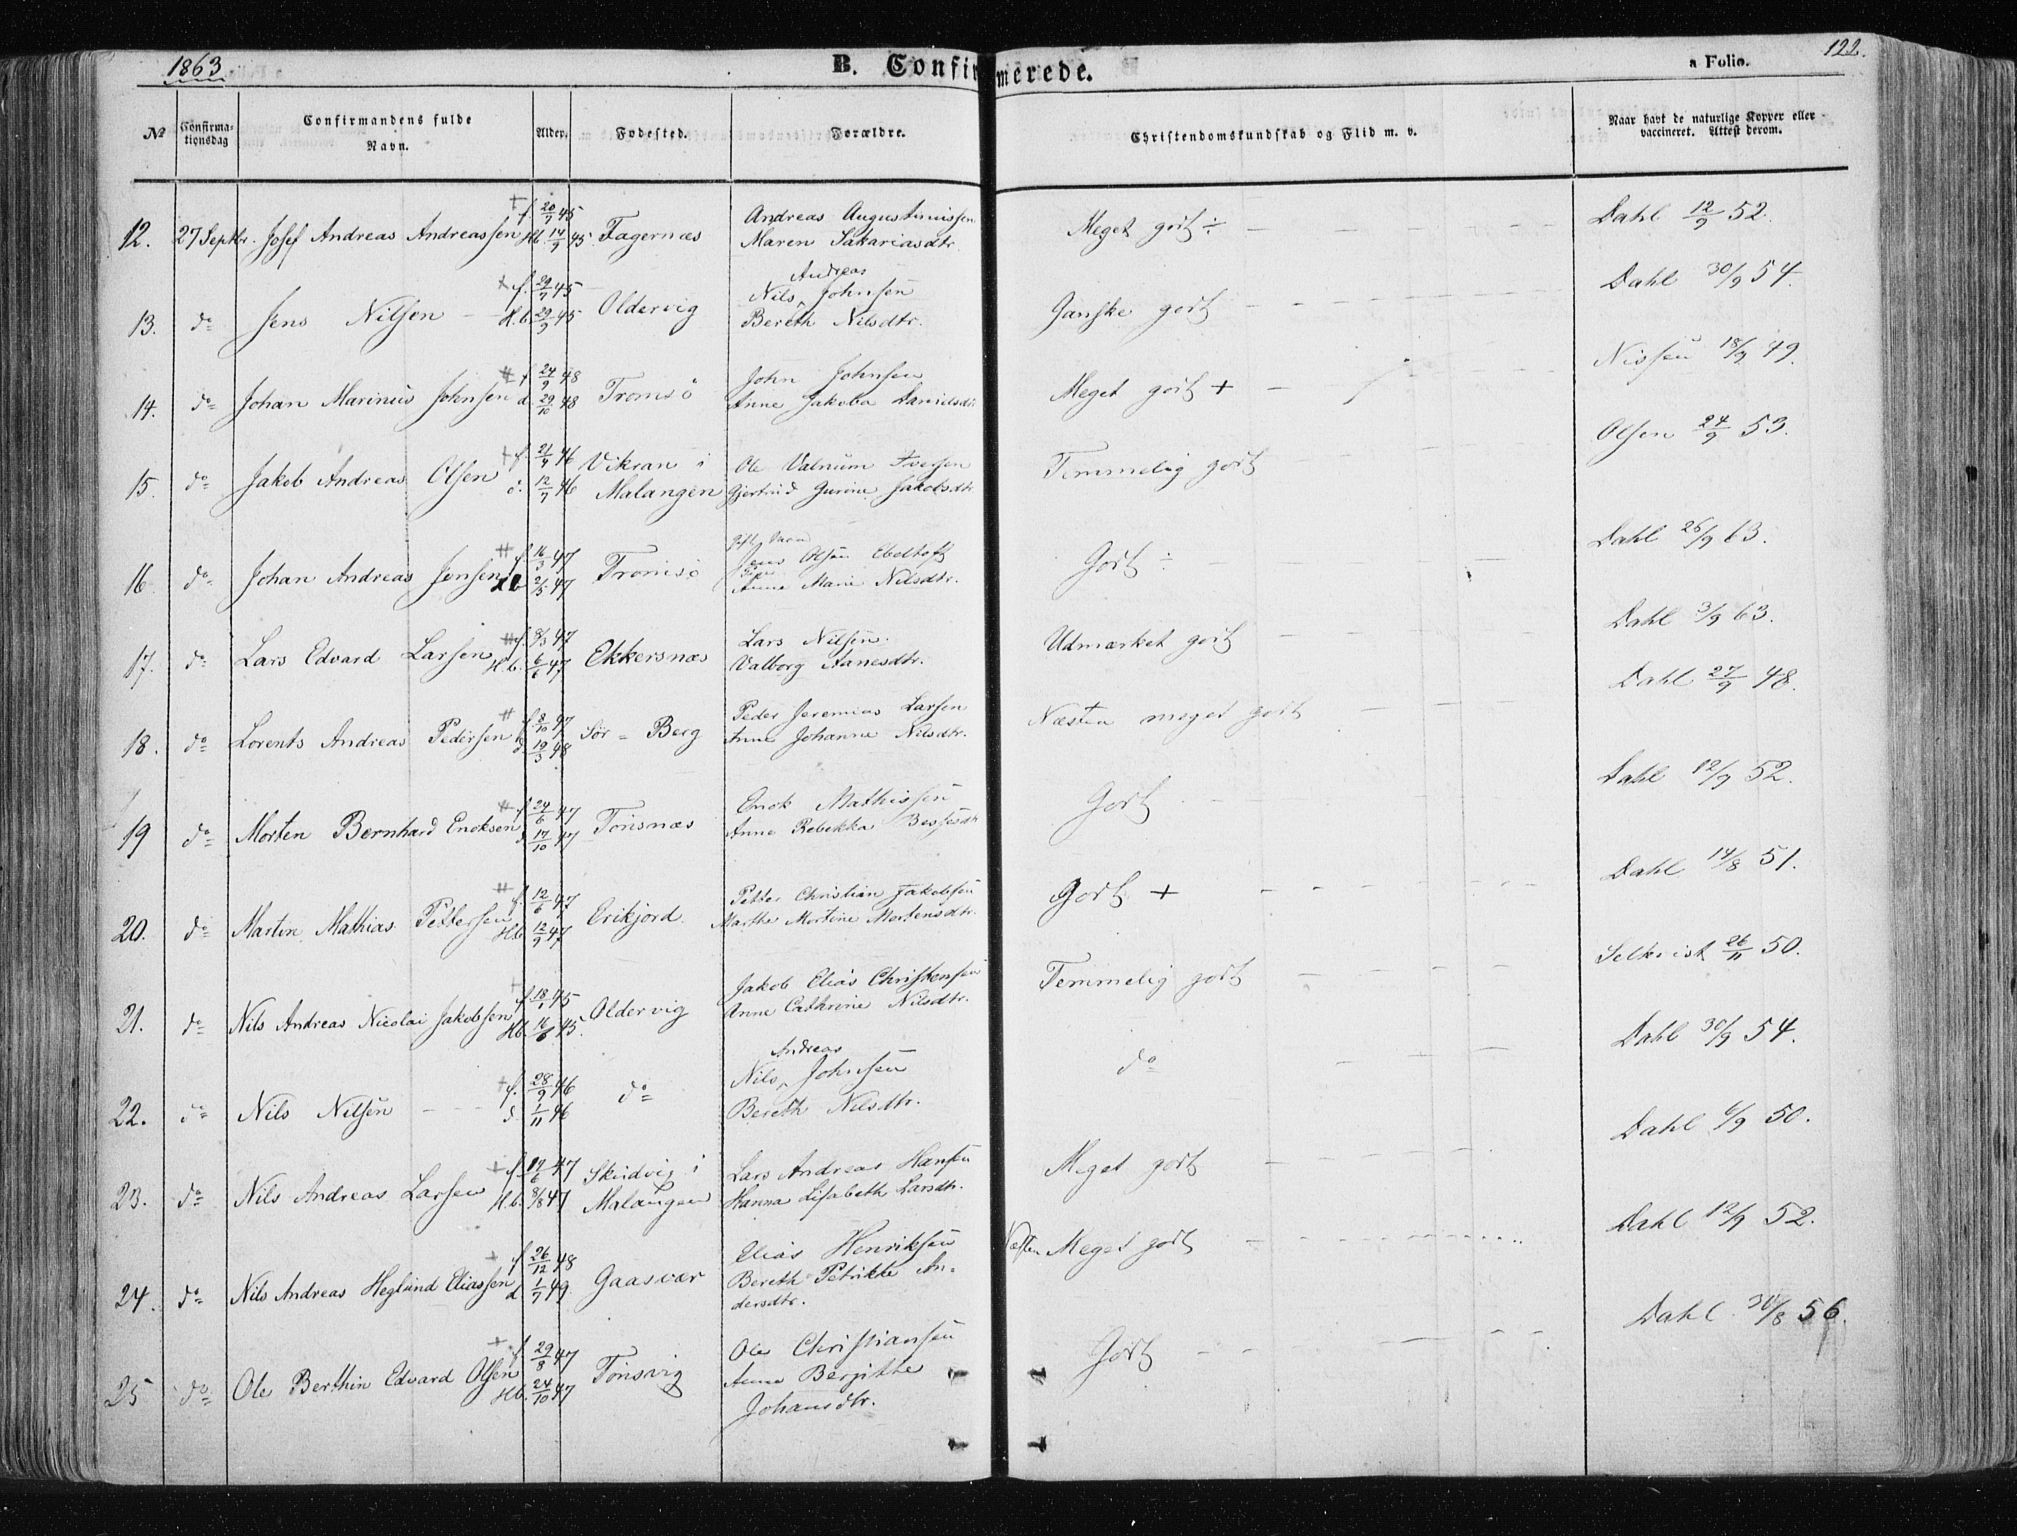 1863
B. Confirmerede.
a Folio. 122.
No
Confirma-
tionsdag
Confirmandens fulde
Navn.
Alder.
Fødested.
Forældre.
Christendomskundskab og Flid m. v.
Naar havt de naturlige Kopper eller
vaccineret. Attest derom.
12. 27 Septbr. Josef Andreas Andreassen f. 20/7 45 Hb. 14/9 45. Fagernæs
Andreas Augustinussen
Maren Sakariasdtr.
Meget godt ÷
Dahl 12/9 52.
13. do Jens Nilsen f. 29/7 45 H.b. 29/9 45 Oldervig
Andreas
Nils Johnsen
Bereth Nilsdtr.
Ganske godt
Dahl 30/9 54.
14. do Johan Marinius Johnsen f 24/9 48 d 29/10 48 Tromsö
John Johnsen
Anne Jakoba Danielsdtr
Meget godt +
Nissen 18/9 49.
15. do Jakob Andreas Olsen f. 21/4 46 d. 12/7 46 Vikran i
Malangen
Ole Valnum Iversen
Gjertrud Gurine Jakobsdtr
Temmelig godt
Olsen 24/9 53.
16 do Johan Andreas Jensen f 16/3 47 2/5 47 Tromsö
Jens Olsen Ebeltoft
Anne Marie Nilsdtr.
Godt ÷
Dahl 26/9 63.
17. do Lars Edvard Larsen f. 8/3 47 H.b. 6/6 47 Ekkersnæs
Lars Nilsen.
Valborg Aanesdtr.
Udmærket godt
Dahl 3/9 63.
18. do Lorents Andreas Pedersen f 8/10 47 d. 19/3 48 Sør-Berg
Peder Jeremias Larsen
Anne Johanne Nilsdtr.
Næsten meget godt
Dahl 27/9 48.
19 do Morten Bernhard Enoksen f 24/6 47 d 17/10 47 Tönsnæs
Enok Mathissen
Anne Rebekka Bessesdtr
Godt
Dahl 12/9 52.
20. do Martin Mathias Pettersen f. 12/6 47 Hb. 12/9 47 Erikjord.
Petter Christian Jakobsen
Marthe Mortine Mortensdtr.
Godt +
Dahl 14/8 51.
21. do Nils Andreas Nicolai Jakobsen f 18/1 45 Hb. 16/6 45. Oldervig
Jakob Elias Christensen
Anne Cathrine Nilsdtr.
Temmelig godt
Selkvist 26/11 50.
22. do Nils Nilsen f. 28/9 46 d. 1/11 46 do
Andreas
Nils Johnsen
Bereth Nilsdtr.
do
Dahl 30/9 54.
23. do Nils Andreas Larsen f 17/6 47 H.b. 8/8 47 Skudvig i
Malangen
Lars Andreas Hansen
Hanna Lisabeth Larsdtr.
Meget godt
Dahl 6/9 50.
24. do Nils Andreas Heglund Eliassen f 26/12 48 d 1/7 49. Gaasvær
Elias Henriksen
Bereth Petrikke An-
dersdtr.
Næsten Meget godt
Dahl 12/9 52.
25 do Ole Berthin Edvard Olsen f. 29/8 47 Hb. 24/10 47 Tönsvig
Ole Christiansen
Anne Bergitte
Johansdtr.
Godt
Dahl 30/8 56.